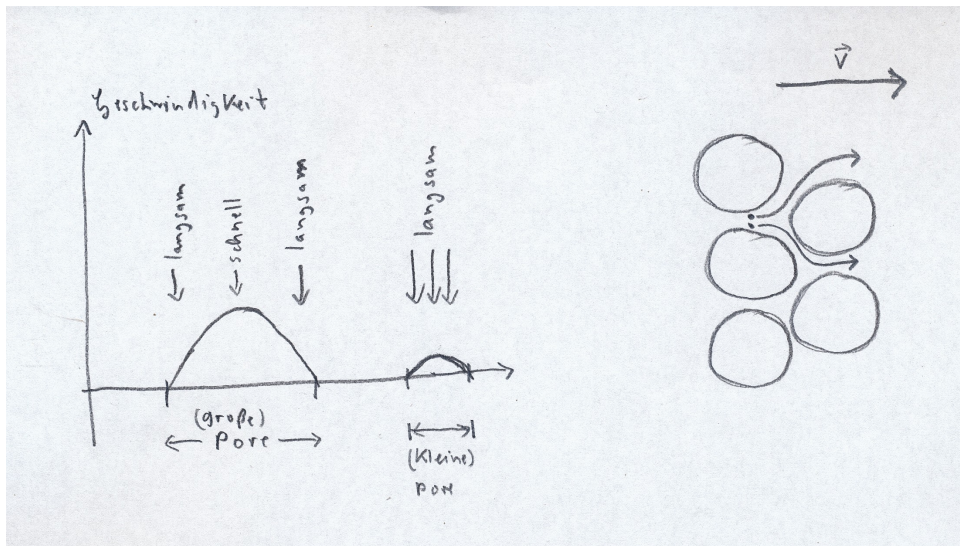 Geschwindigkeit
langsam
schnell
langsam
langsam
(große)
Pore
(Kleine)
Pore
v